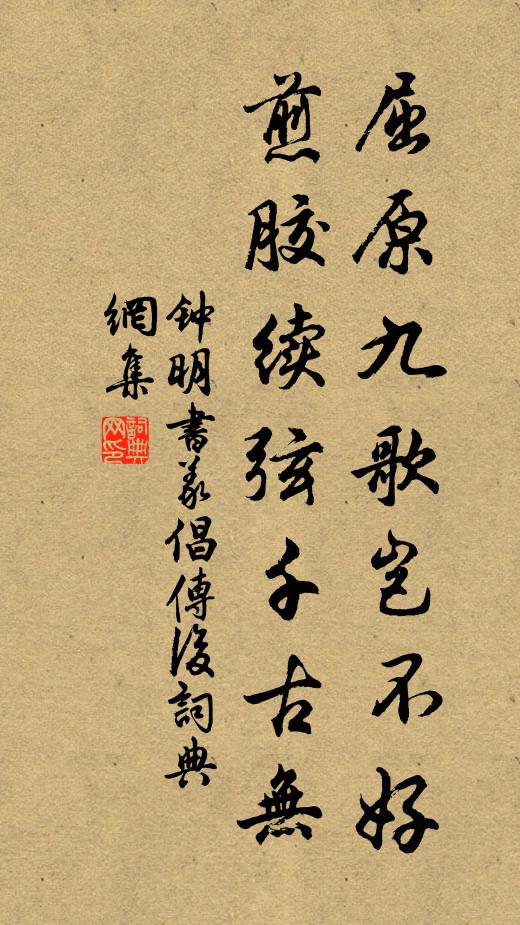 屈原九歌岂不好
煎胶续弦千古無
钟明書義倡傳後詞典
網集
詞典
网印